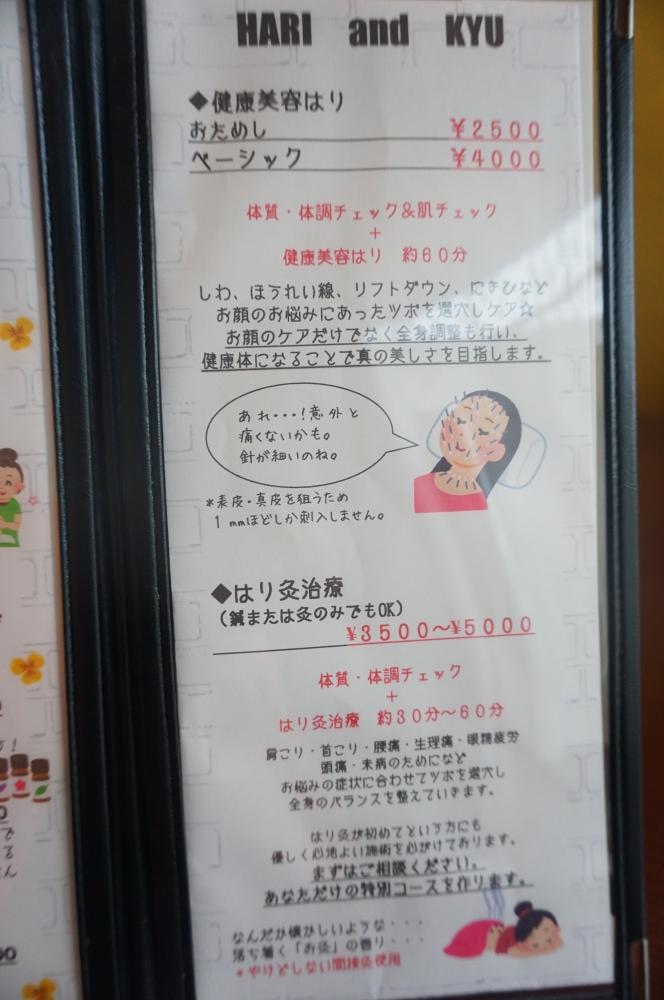 HARI and KYU
◆健康美容はり
おためし ￥2500
ベーシック ￥4000
体質・体調チェック&肌チェック
+
健康美容はり 約60分
しわ、ほうれい線、リフトダウン、にきびなど
お顔のお悩みにあったツボを選穴しケア☆
お顔のケアだけでなく全身調整も行い、
健康体になることで真の美しさを目指します。
あれ・・・！意外と
痛くないかも。
針が細いのね。
*表皮・真皮を狙うため
1mmほどしか刺入しません。
◆はり灸治療
(鍼または灸のみでもOK)
¥3500〜¥5000
体質・体調チェック
+
はり灸治療 約30分〜60分
肩こり・首こり・腰痛・生理痛・眼精疲労
頭痛・未病のためになど
お悩みの症状に合わせてツボを選穴し
全身のバランスを整えていきます。
はり灸が初めてという方にも
優しく心地よい施術を心がけております。
まずはご相談ください。
あなただけの特別コースを作ります。
なんだか懐かしいような・・・
落ち着く「お灸」の香り・・・
*やけどしない間接灸使用